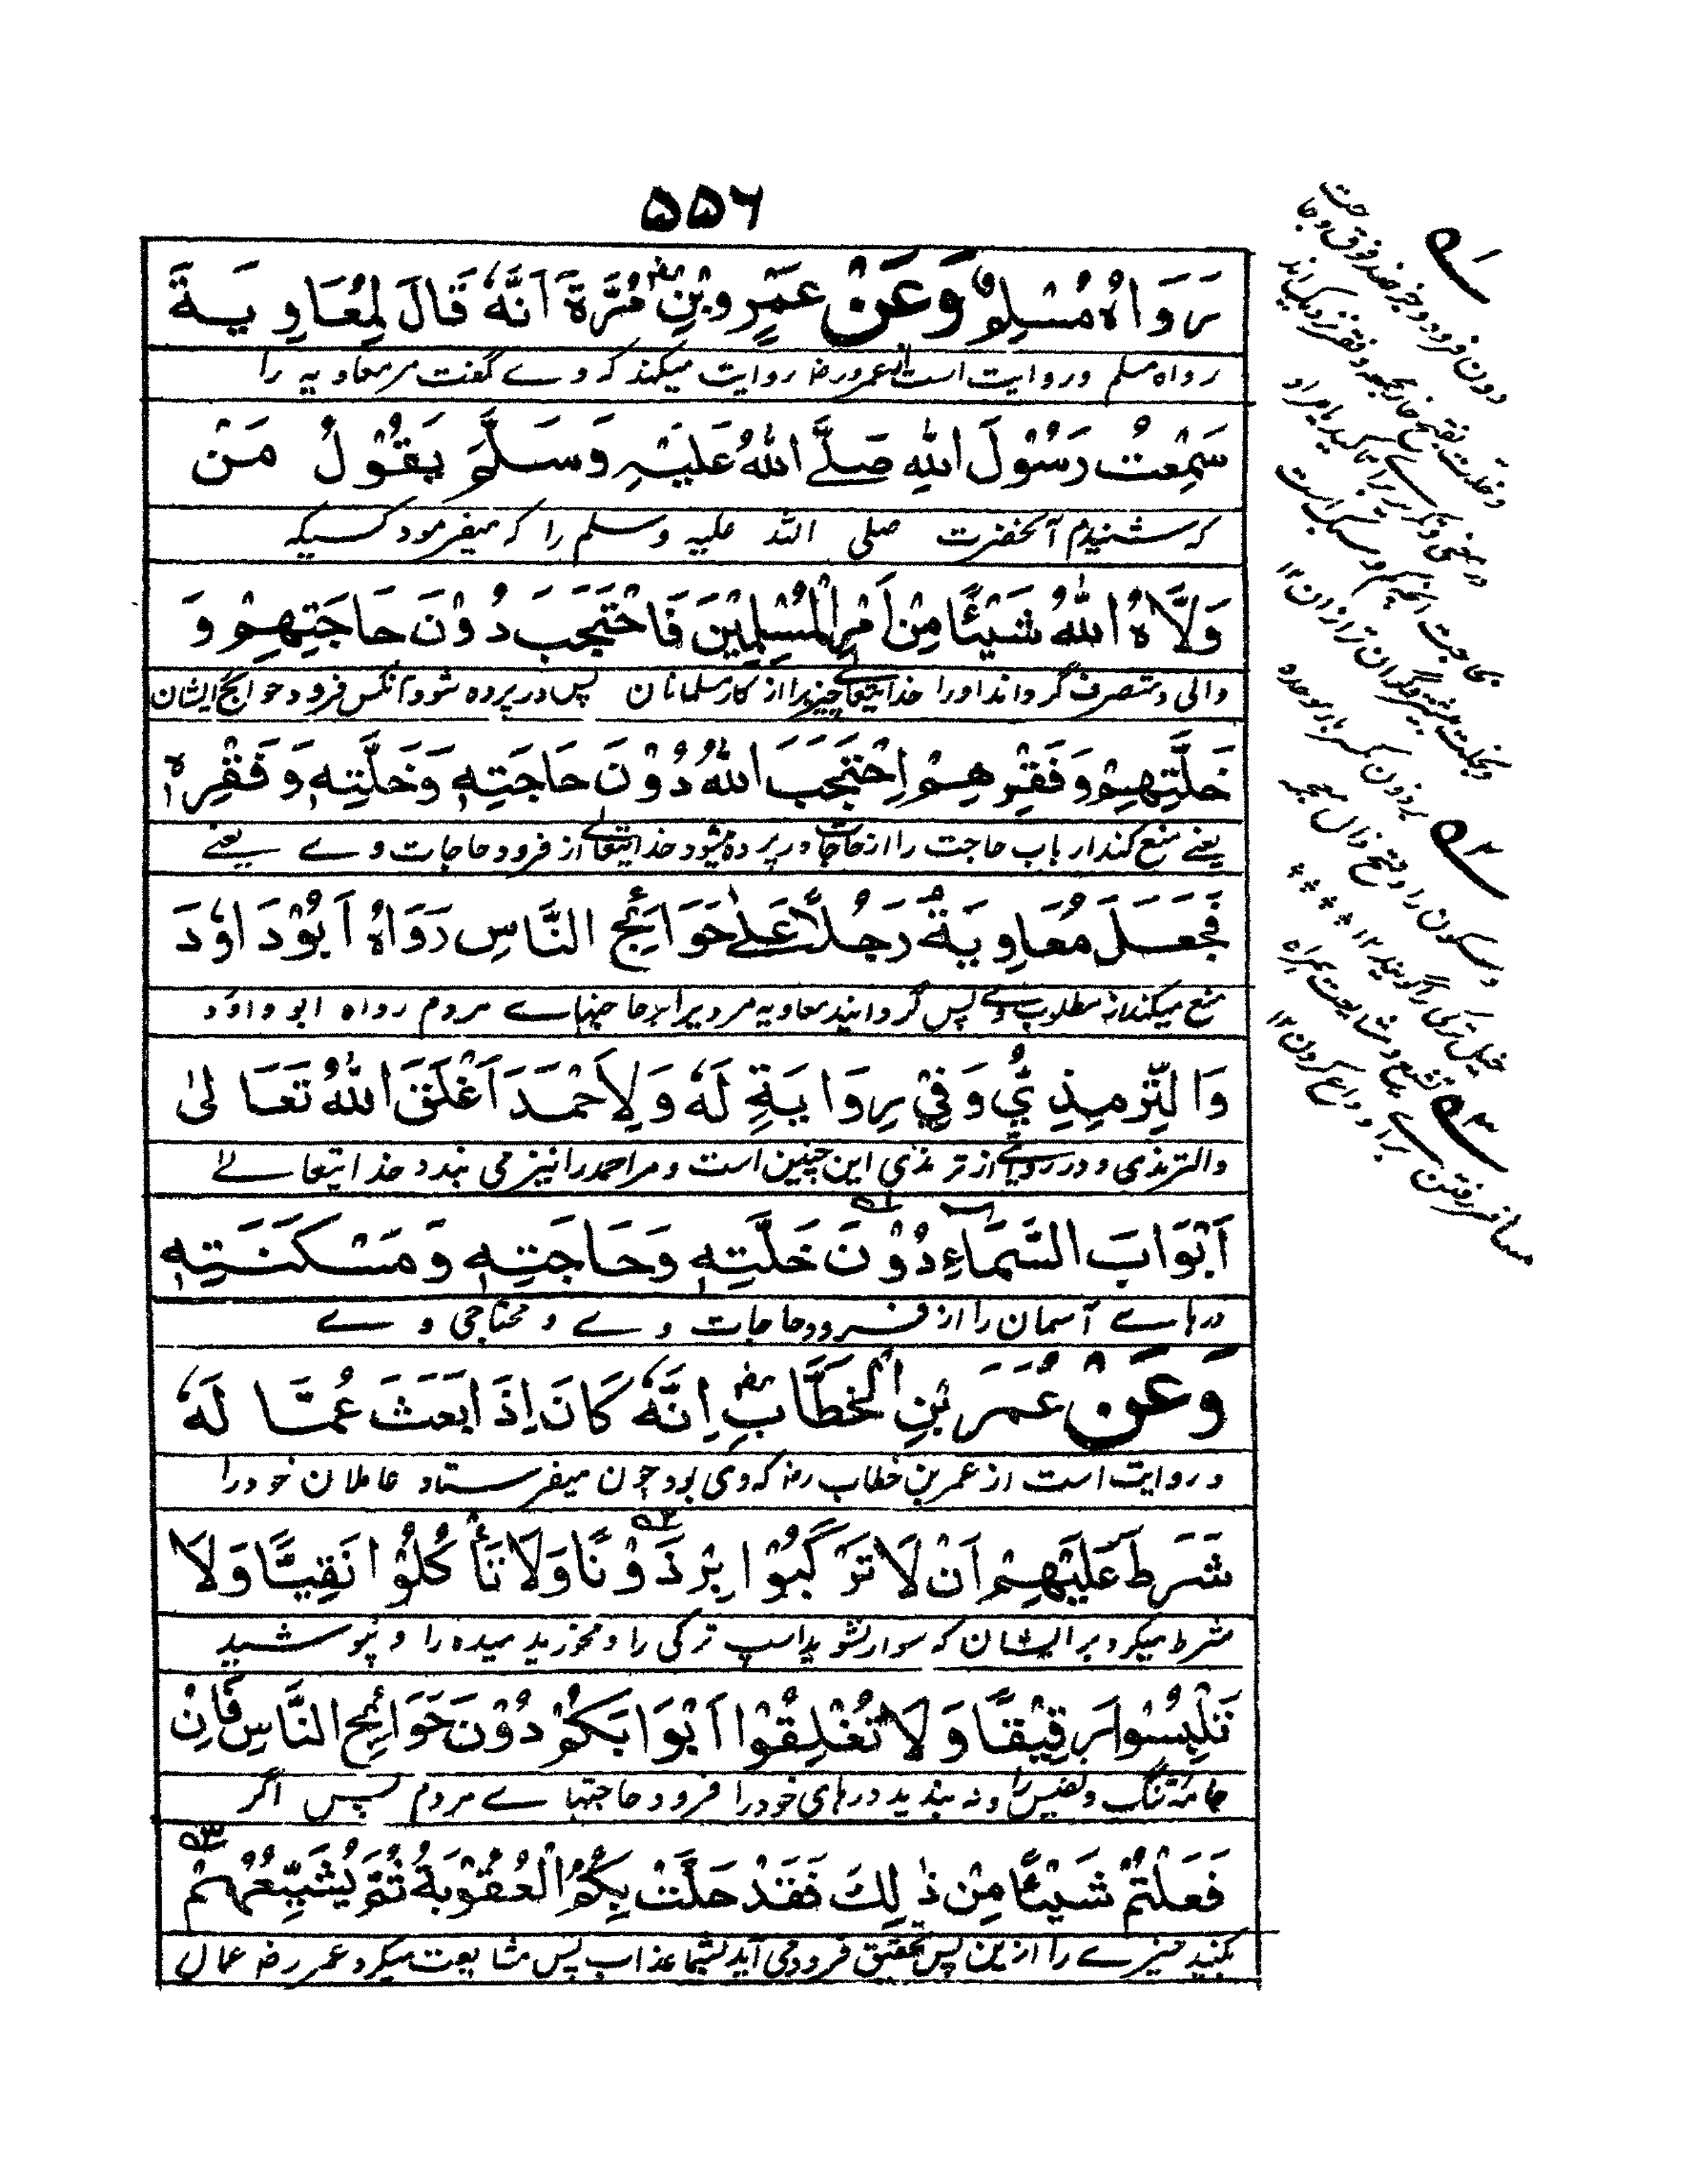 ۵۵۶
رَوَاهُ مُسْلِمٌ وَعَنْ عَمْرِو بْنِ مُرَّةَ رض اَنَّهٗ قَالَ لِمُعَاوِيَةَ
رواه مسلم و روایت است از عمرو رض روایت میکند که وے گفت مر معاویه را
سَمِعْتُ رَسُوْلَ اللّٰهِ صَلَّے اللّٰهُ عَلَيْهِ وَسَلَّمَ يَقُوْلُ مَنْ
که شنیدم آنحضرت صلی الله علیه وسلم را که میفرمود کسیکه
وَلَّاهُ اللّٰهُ شَيْئًا مِنْ اَمْرِ الْمُسْلِمِيْنَ فَاحْتَجَبَ دُوْنَ حَاجَتِهِمْ وَ
والی و متصرف گرداند او را خدایتعالے چیزیرا از کار مسلمانان پس در پرده شود آنکس فرود حوائج ایشان
خَلَّتِهِمْ وَفَقْرِهِمْ اِحْتَجَبَ اللّٰهُ دُوْنَ حَاجَتِهٖ وَخَلَّتِهٖ وَفَقْرِهٖ
یعنے منع کند ارباب حاجت را از حاجات در پرده میشود خدایتعالے از فرود حاجات وے یعنے
فَجَعَلَ مُعَاوِيَةُ رَجُلًا عَلٰے حَوَائِجِ النَّاسِ رَوَاهُ اَبُوْدَاوٗدَ
منع میکند از مطلوب وے پس گردانید معاویه مردیرا بر حاجتهاے مردم رواه ابو داوٗد
وَالتِّرْمِذِيُّ وَفِيْ رِوَايَةٍ لَهٗ وَلِاَحْمَدَ اَغْلَقَ اللّٰهُ تَعَالٰى
والترمذی و در روایتے از ترمذی این چنین است و مر احمد را نیز می بندد خدایتعالےٰ
اَبْوَابَ السَّمَآءِ دُوْنَ خَلَّتِهٖ وَحَاجَتِهٖ وَمَسْكَنَتِهٖ
درهاے آسمان را از فرود حاجات وے و محتاجی وے
وَعَنْ عُمَرَ بْنِ الْخَطَّابِ رض اِنَّهٗ كَانَ اِذَا بَعَثَ عُمَّالَهٗ
و روایت است از عمر بن خطاب رض که وی بود چون میفرستاد عاملان خود را
شَرَطَ عَلَيْهِمْ اَنْ لَا تَرْكَبُوْا بِرْذَوْنًا وَلَا تَأْكُلُوْا نَقِيًّا وَلَا
شرط میکرد بر ایشان که سوار نشوید اسپ ترکی را و نخورید میده را و نپوشید
تَلْبِسُوْا رَقِيْقًا وَلَا تُغْلِقُوْا اَبْوَابَكُمْ دُوْنَ حَوَائِجِ النَّاسِ فَاِنْ
جامهٔ تنگ و نفیس را و نه بندید درهای خود را فرود حاجتهاے مردم پس اگر
فَعَلْتُمْ شَيْئًا مِنْ ذٰلِكَ فَقَدْ حَلَّتْ بِكُمُ الْعُقُوْبَةُ ثُمَّ يُشَيِّعُهُمْ
بکنید چیزے را ازین پس تحقیق فرود می آید بشما عذاب پس مشایعت میکرد عمر رض عمال